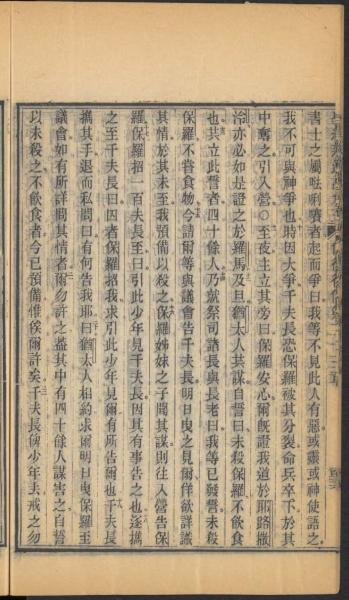 書士之屬𠵽唎㘔者起而爭曰我等不見此人有惡或靈或神使語之
我不可與神爭也時因大爭千夫長恐保羅被其分裂命兵卒下於其
中奪之引入營○至夜主立其旁曰保羅安心爾既證我道於耶路撒
冷亦必如是證之於羅馬及旦猶太人共謀自誓曰未殺保羅不飲食
也其立此誓者四十餘人乃就祭司諸長與長老曰我等已發誓未殺
保羅不嘗食物今請爾等與議會告千夫長明日曳之見爾佯欲詳識
其情於其未至我預備以殺之保羅姊妹之子聞其謀則往入營告保
羅保羅招一百夫長至曰引此少年見千夫長因其有事告之也遂攜
之至千夫長曰囚者保羅招我求引此少年見爾有所告爾也千夫長
攜其手退而私問曰有何告我耶曰猶太人相約求爾明日曳保羅至
議會如有所詳問其情者爾勿許之蓋其中有四十餘人謀害之自誓
以未殺之不飲食者今已預備惟俟爾許矣千夫長俾少年去戒之勿